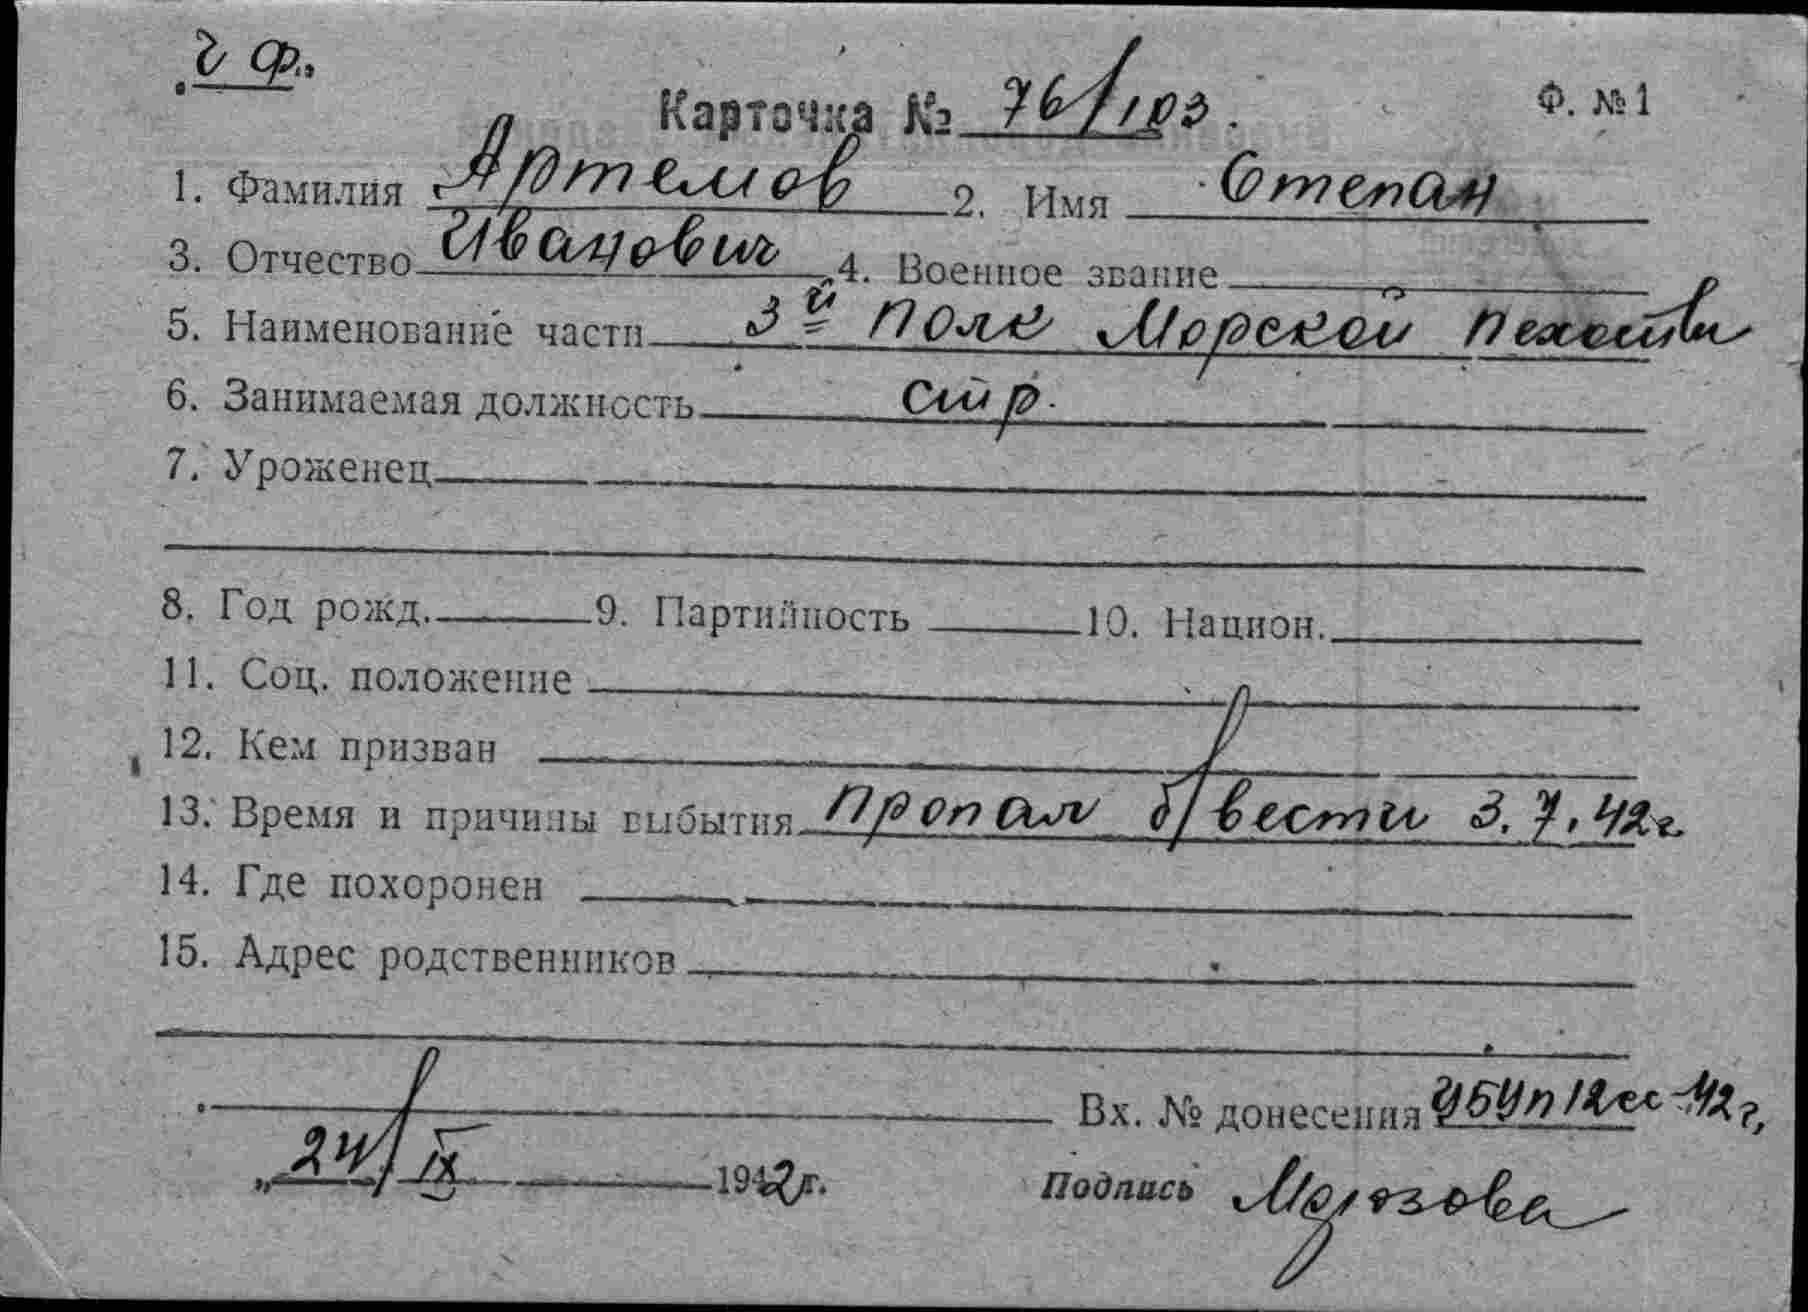 ч Ф.
Карточка № 76/103. Ф. № 1
1. Фамилия Артемов 2. Имя Степан
3. Отчество Иванович 4. Военное звание
5. Наименование части 3й полк Морской пехоты
6. Занимаемая должность стр.
7. Уроженец
8. Год рожд. 9. Партийность 10. Национ.
11. Соц. положение
12. Кем призван
13. Время и причины выбытия пропал б/вести 3.7.42г.
14. Где похоронен
15. Адрес родственников
Вх. № донесения 42 г.
„24/IX 1942 г. Подпись Морозова